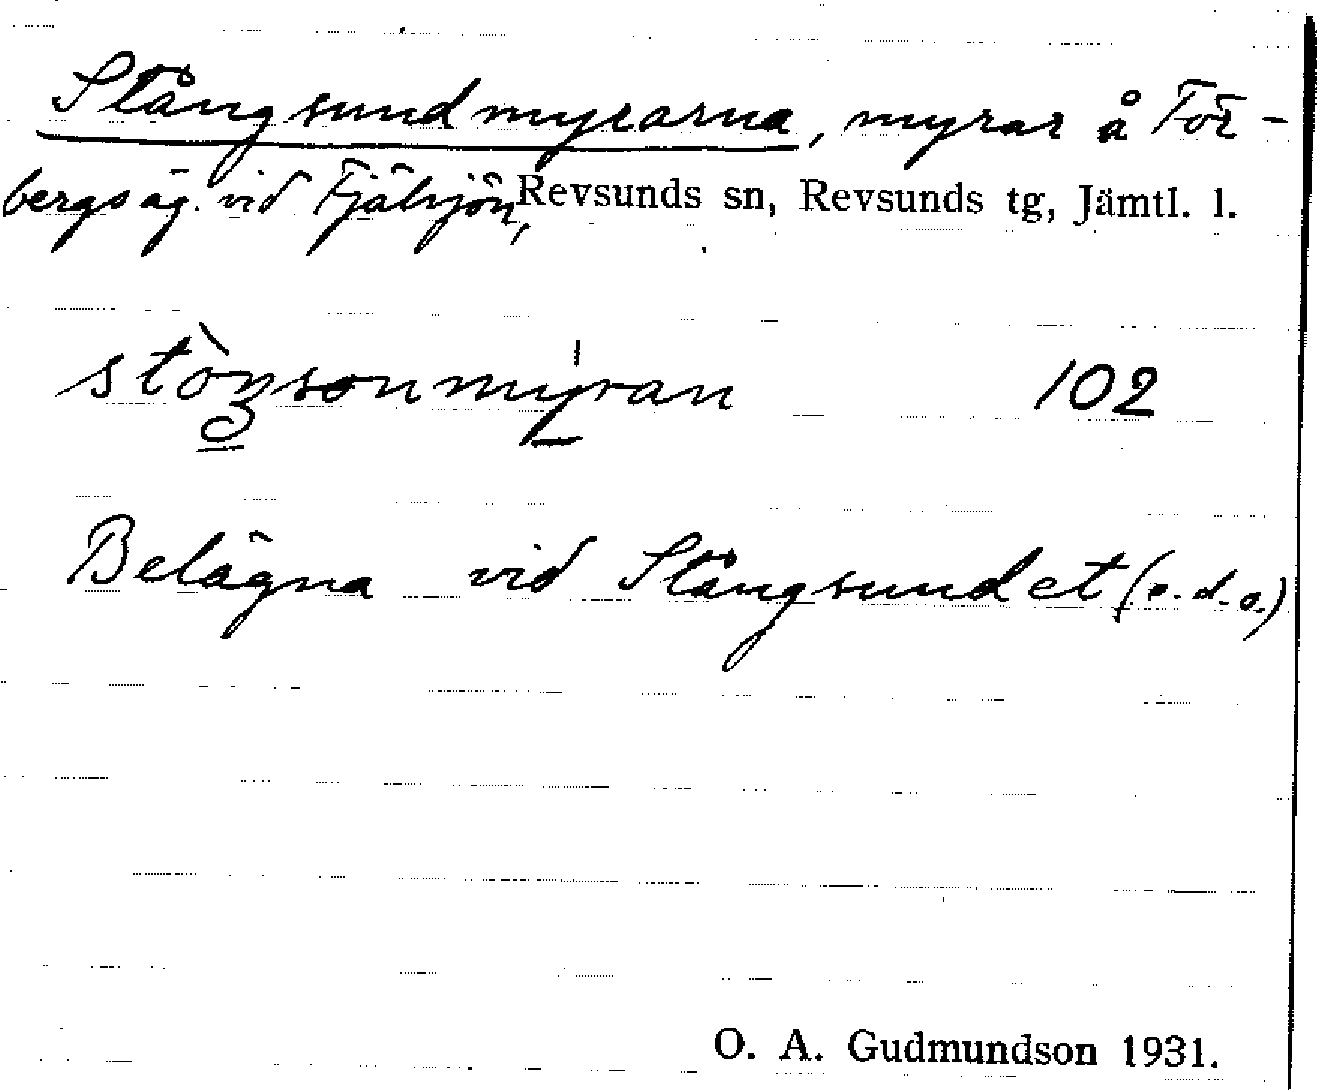 Stångsundmyrarna, myrar å För-
bergs äg. vid Fjälsjön, Revsunds sn, Revsunds tg, Jämtl. l.
stòŋsonmyran 102
Belägna vid Stångsundet (s.d.o.)
O. A. Gudmundson 1931.